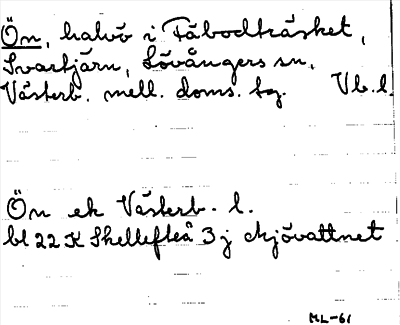 Ön, halvö i Fäbodträsket,
Svartjärn, Lövångers sn,
Västerb. mell. doms. bg. Vb.l.
Ön ek Västerb. l.
bl 22 K Skellefteå 3 j Mjövattnet
ML-61